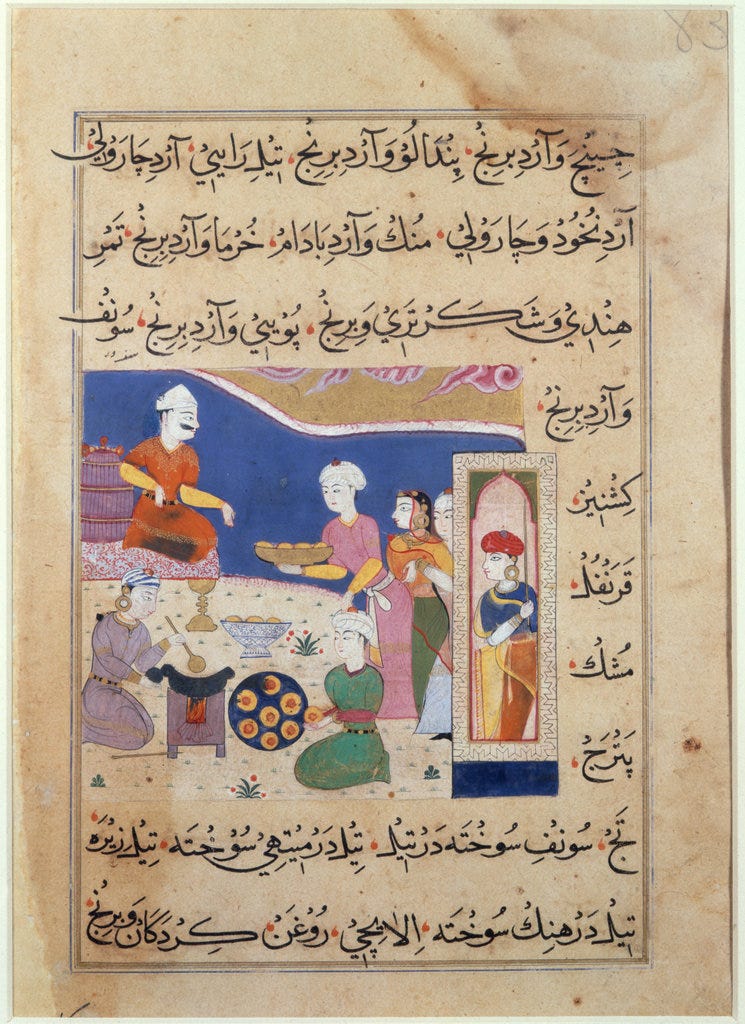 83
چِينچ وَآرْدِ بِرِنْج، پِنْدَالُوْ وَآرْدِ بِرِنْج، تيْلِ رَايِيْ، آرْدِ چَارَوْلِيْ
آرْدِ نُخُوْدْ وَ چَارَوْلِيْ، مُنْك وَآرْدِ بَادَامْ، خُرْمَا وَآرْدِ بِرِنْج، تَمْرِ
هِنْدِيْ وَ شَكَرْ تَرِيْ وَ بِرِنْج، پُوْيِيْ وَآرْدِ بِرِنْج، سُوْنْفْ
وَآرْدِ بِرِنْج،
كِشْنِيْزْ،
قَرَنْفُلْ،
مُشْكْ،
پَتْرَجْ،
تَجْ، سُوْنْفِ سُوْخْتَه دَرْ تيْلْ، تيْلْ دَرْ مِيْتْهِيْ سُوْخْتَه، تيْلِ زِيْرَه،
تيْلْ دَرْ هِنْكْ سُوْخْتَه، اِلَايْچِيْ، رَوْغَنْ كِرْدَكَانْ وَ بِرِنْج،